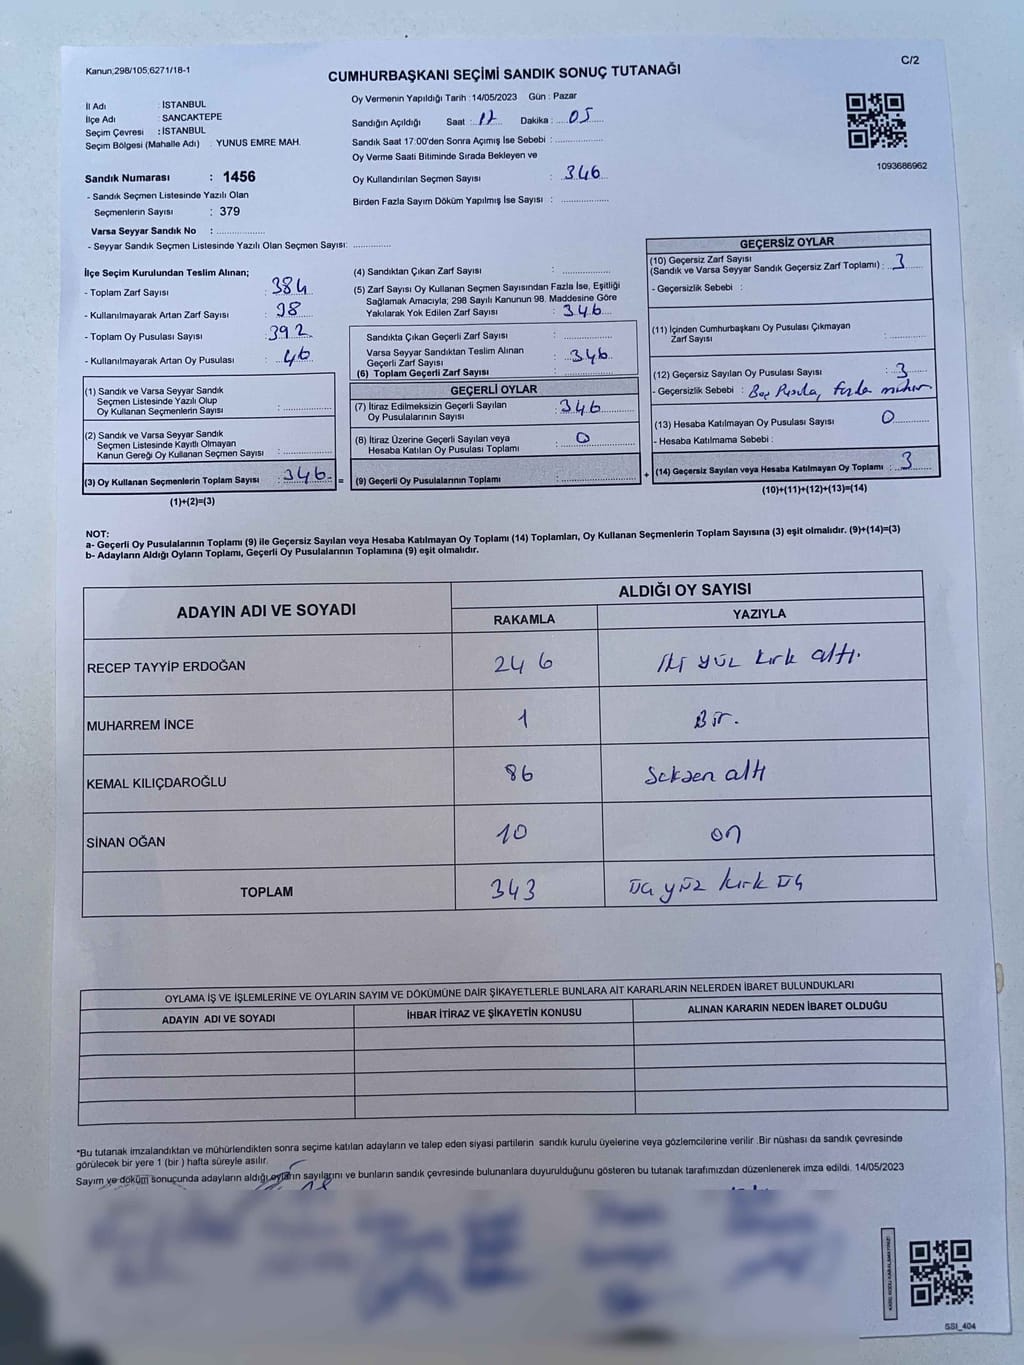 Kanun;298/105;6271/18-1
C/2
CUMHURBAŞKANI SEÇİMİ SANDIK SONUÇ TUTANAĞI
İl Adı : İSTANBUL
İlçe Adı : SANCAKTEPE
Seçim Çevresi : İSTANBUL
Seçim Bölgesi (Mahalle Adı) : YUNUS EMRE MAH.
Sandık Numarası : 1456
- Sandık Seçmen Listesinde Yazılı Olan
Seçmenlerin Sayısı : 379
Varsa Seyyar Sandık No : ....................
- Seyyar Sandık Seçmen Listesinde Yazılı Olan Seçmen Sayısı: ............
Oy Vermenin Yapıldığı Tarih : 14/05/2023 Gün : Pazar
Sandığın Açıldığı Saat : 17 Dakika : 05
Sandık Saat 17:00'den Sonra Açımış İse Sebebi : ................
Oy Verme Saati Bitiminde Sırada Bekleyen ve
Oy Kullandırılan Seçmen Sayısı : 346
Birden Fazla Sayım Döküm Yapılmış İse Sayısı : ................
1093686962
İlçe Seçim Kurulundan Teslim Alınan;
- Toplam Zarf Sayısı : 384
- Kullanılmayarak Artan Zarf Sayısı : 38
- Toplam Oy Pusulası Sayısı : 392
- Kullanılmayarak Artan Oy Pusulası : 46
(1) Sandık ve Varsa Seyyar Sandık
Seçmen Listesinde Yazılı Olup
Oy Kullanan Seçmenlerin Sayısı : ................
(2) Sandık ve Varsa Seyyar Sandık
Seçmen Listesinde Kayıtlı Olmayan
Kanun Gereği Oy Kullanan Seçmen Sayısı : ................
(3) Oy Kullanan Seçmenlerin Toplam Sayısı : 346 =
(1)+(2)=(3)
(4) Sandıktan Çıkan Zarf Sayısı : ................
(5) Zarf Sayısı Oy Kullanan Seçmen Sayısından Fazla İse, Eşitliği
Sağlamak Amacıyla; 298 Sayılı Kanunun 98. Maddesine Göre
Yakılarak Yok Edilen Zarf Sayısı : 346
Sandıkta Çıkan Geçerli Zarf Sayısı : ................
Varsa Seyyar Sandıktan Teslim Alınan
Geçerli Zarf Sayısı : 346
(6) Toplam Geçerli Zarf Sayısı : ................
GEÇERLİ OYLAR
(7) İtiraz Edilmeksizin Geçerli Sayılan
Oy Pusulalarının Sayısı : 346
(8) İtiraz Üzerine Geçerli Sayılan veya
Hesaba Katılan Oy Pusulası Toplamı : 0
(9) Geçerli Oy Pusulalarının Toplamı : ................ +
GEÇERSİZ OYLAR
(10) Geçersiz Zarf Sayısı
(Sandık ve Varsa Seyyar Sandık Geçersiz Zarf Toplamı) : 3
- Geçersizlik Sebebi :
(11) İçinden Cumhurbaşkanı Oy Pusulası Çıkmayan
Zarf Sayısı : ................
(12) Geçersiz Sayılan Oy Pusulası Sayısı : 3
- Geçersizlik Sebebi : Boş Pusula, fazla mühür
(13) Hesaba Katılmayan Oy Pusulası Sayısı : 0
- Hesaba Katılmama Sebebi :
(14) Geçersiz Sayılan veya Hesaba Katılmayan Oy Toplamı : 3
(10)+(11)+(12)+(13)=(14)
NOT:
a- Geçerli Oy Pusulalarının Toplamı (9) ile Geçersiz Sayılan veya Hesaba Katılmayan Oy Toplamı (14) Toplamları, Oy Kullanan Seçmenlerin Toplam Sayısına (3) eşit olmalıdır. (9)+(14)=(3)
b- Adayların Aldığı Oyların Toplamı, Geçerli Oy Pusulalarının Toplamına (9) eşit olmalıdır.
ADAYIN ADI VE SOYADI
ALDIĞI OY SAYISI
RAKAMLA
YAZIYLA
RECEP TAYYİP ERDOĞAN 246 iki yüz kırk altı.
MUHARREM İNCE 1 Bir.
KEMAL KILIÇDAROĞLU 86 Seksen altı
SİNAN OĞAN 10 on
TOPLAM 343 üç yüz kırk üç
OYLAMA İŞ VE İŞLEMLERİNE VE OYLARIN SAYIM VE DÖKÜMÜNE DAİR ŞİKAYETLERLE BUNLARA AİT KARARLARIN NELERDEN İBARET BULUNDUKLARI
ADAYIN ADI VE SOYADI
İHBAR İTİRAZ VE ŞİKAYETİN KONUSU
ALINAN KARARIN NEDEN İBARET OLDUĞU
*Bu tutanak imzalandıktan ve mühürlendikten sonra seçime katılan adayların ve talep eden siyasi partilerin sandık kurulu üyelerine veya gözlemcilerine verilir .Bir nüshası da sandık çevresinde
görülecek bir yere 1 (bir ) hafta süreyle asılır.
Sayım ve döküm sonucunda adayların aldığı oyların sayılarını ve bunların sandık çevresinde bulunanlara duyurulduğunu gösteren bu tutanak tarafımızdan düzenlenerek imza edildi. 14/05/2023
SSI_404